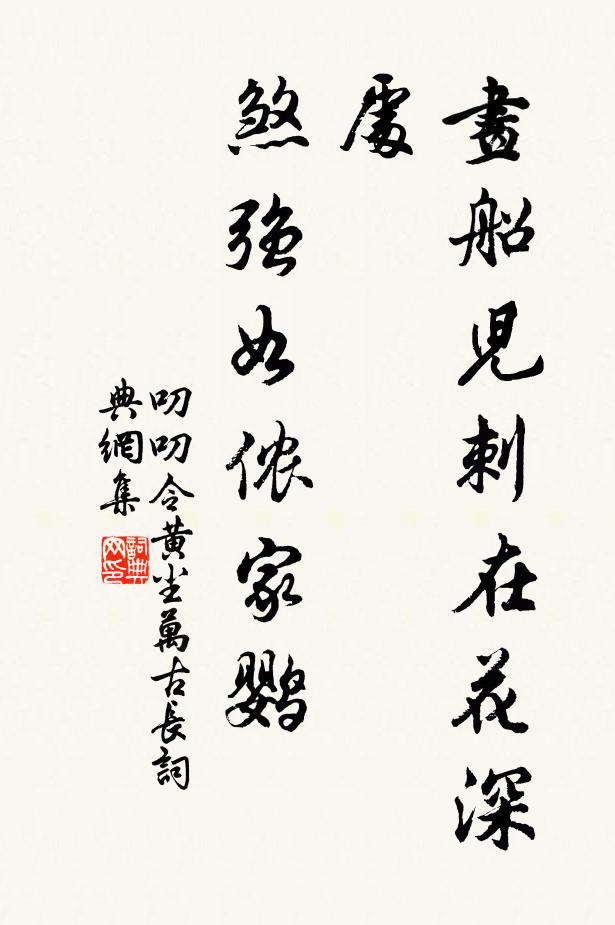 畫船児刺在花深
處
煞強如侬家鹦
叨叨令黄尘萬古長詞
典網集
詞典
网印